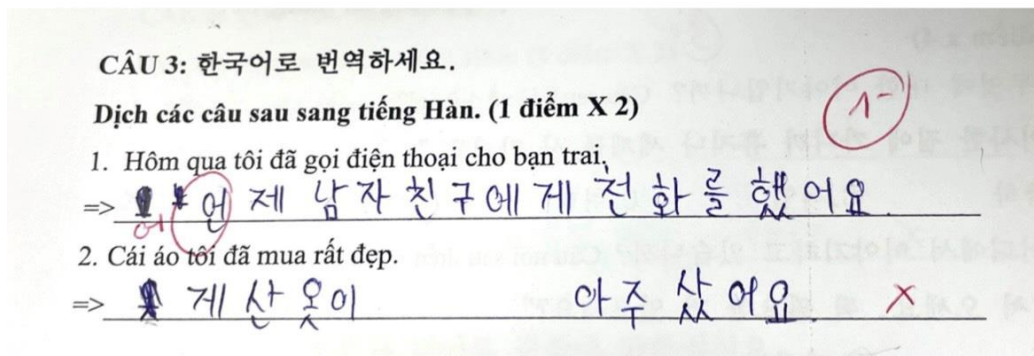 CÂU 3: 한국어로 번역하세요.
Dịch các câu sau sang tiếng Hàn. (1 điểm X 2)
1-
1. Hôm qua tôi đã gọi điện thoại cho bạn trai.
=> 언제 남자친구에게 전화를 했어요
어
2. Cái áo tôi đã mua rất đẹp.
=> 게 산 옷이 아주 샀어요. ×